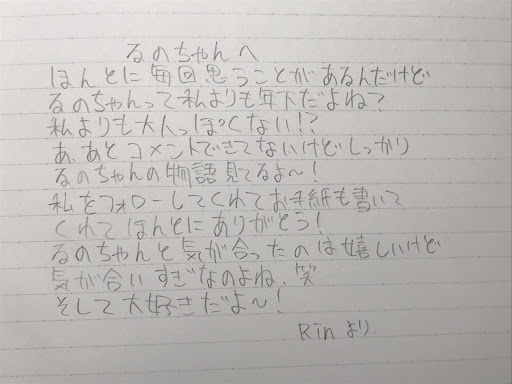 るのちゃんへ
ほんとに毎回思うことがあるんだけど
るのちゃんって私よりも年下だよね?
私よりも大人っぽくない!?
あ、あとコメントできてないけどしっかり
るのちゃんの物語見てるよ～!
私をフォローしてくれてお手紙も書いて
くれてほんとにありがとう!
るのちゃんと気が合ったのは嬉しいけど
気が合いすぎなのよね、笑
そして大好きだよ～!
Rinより